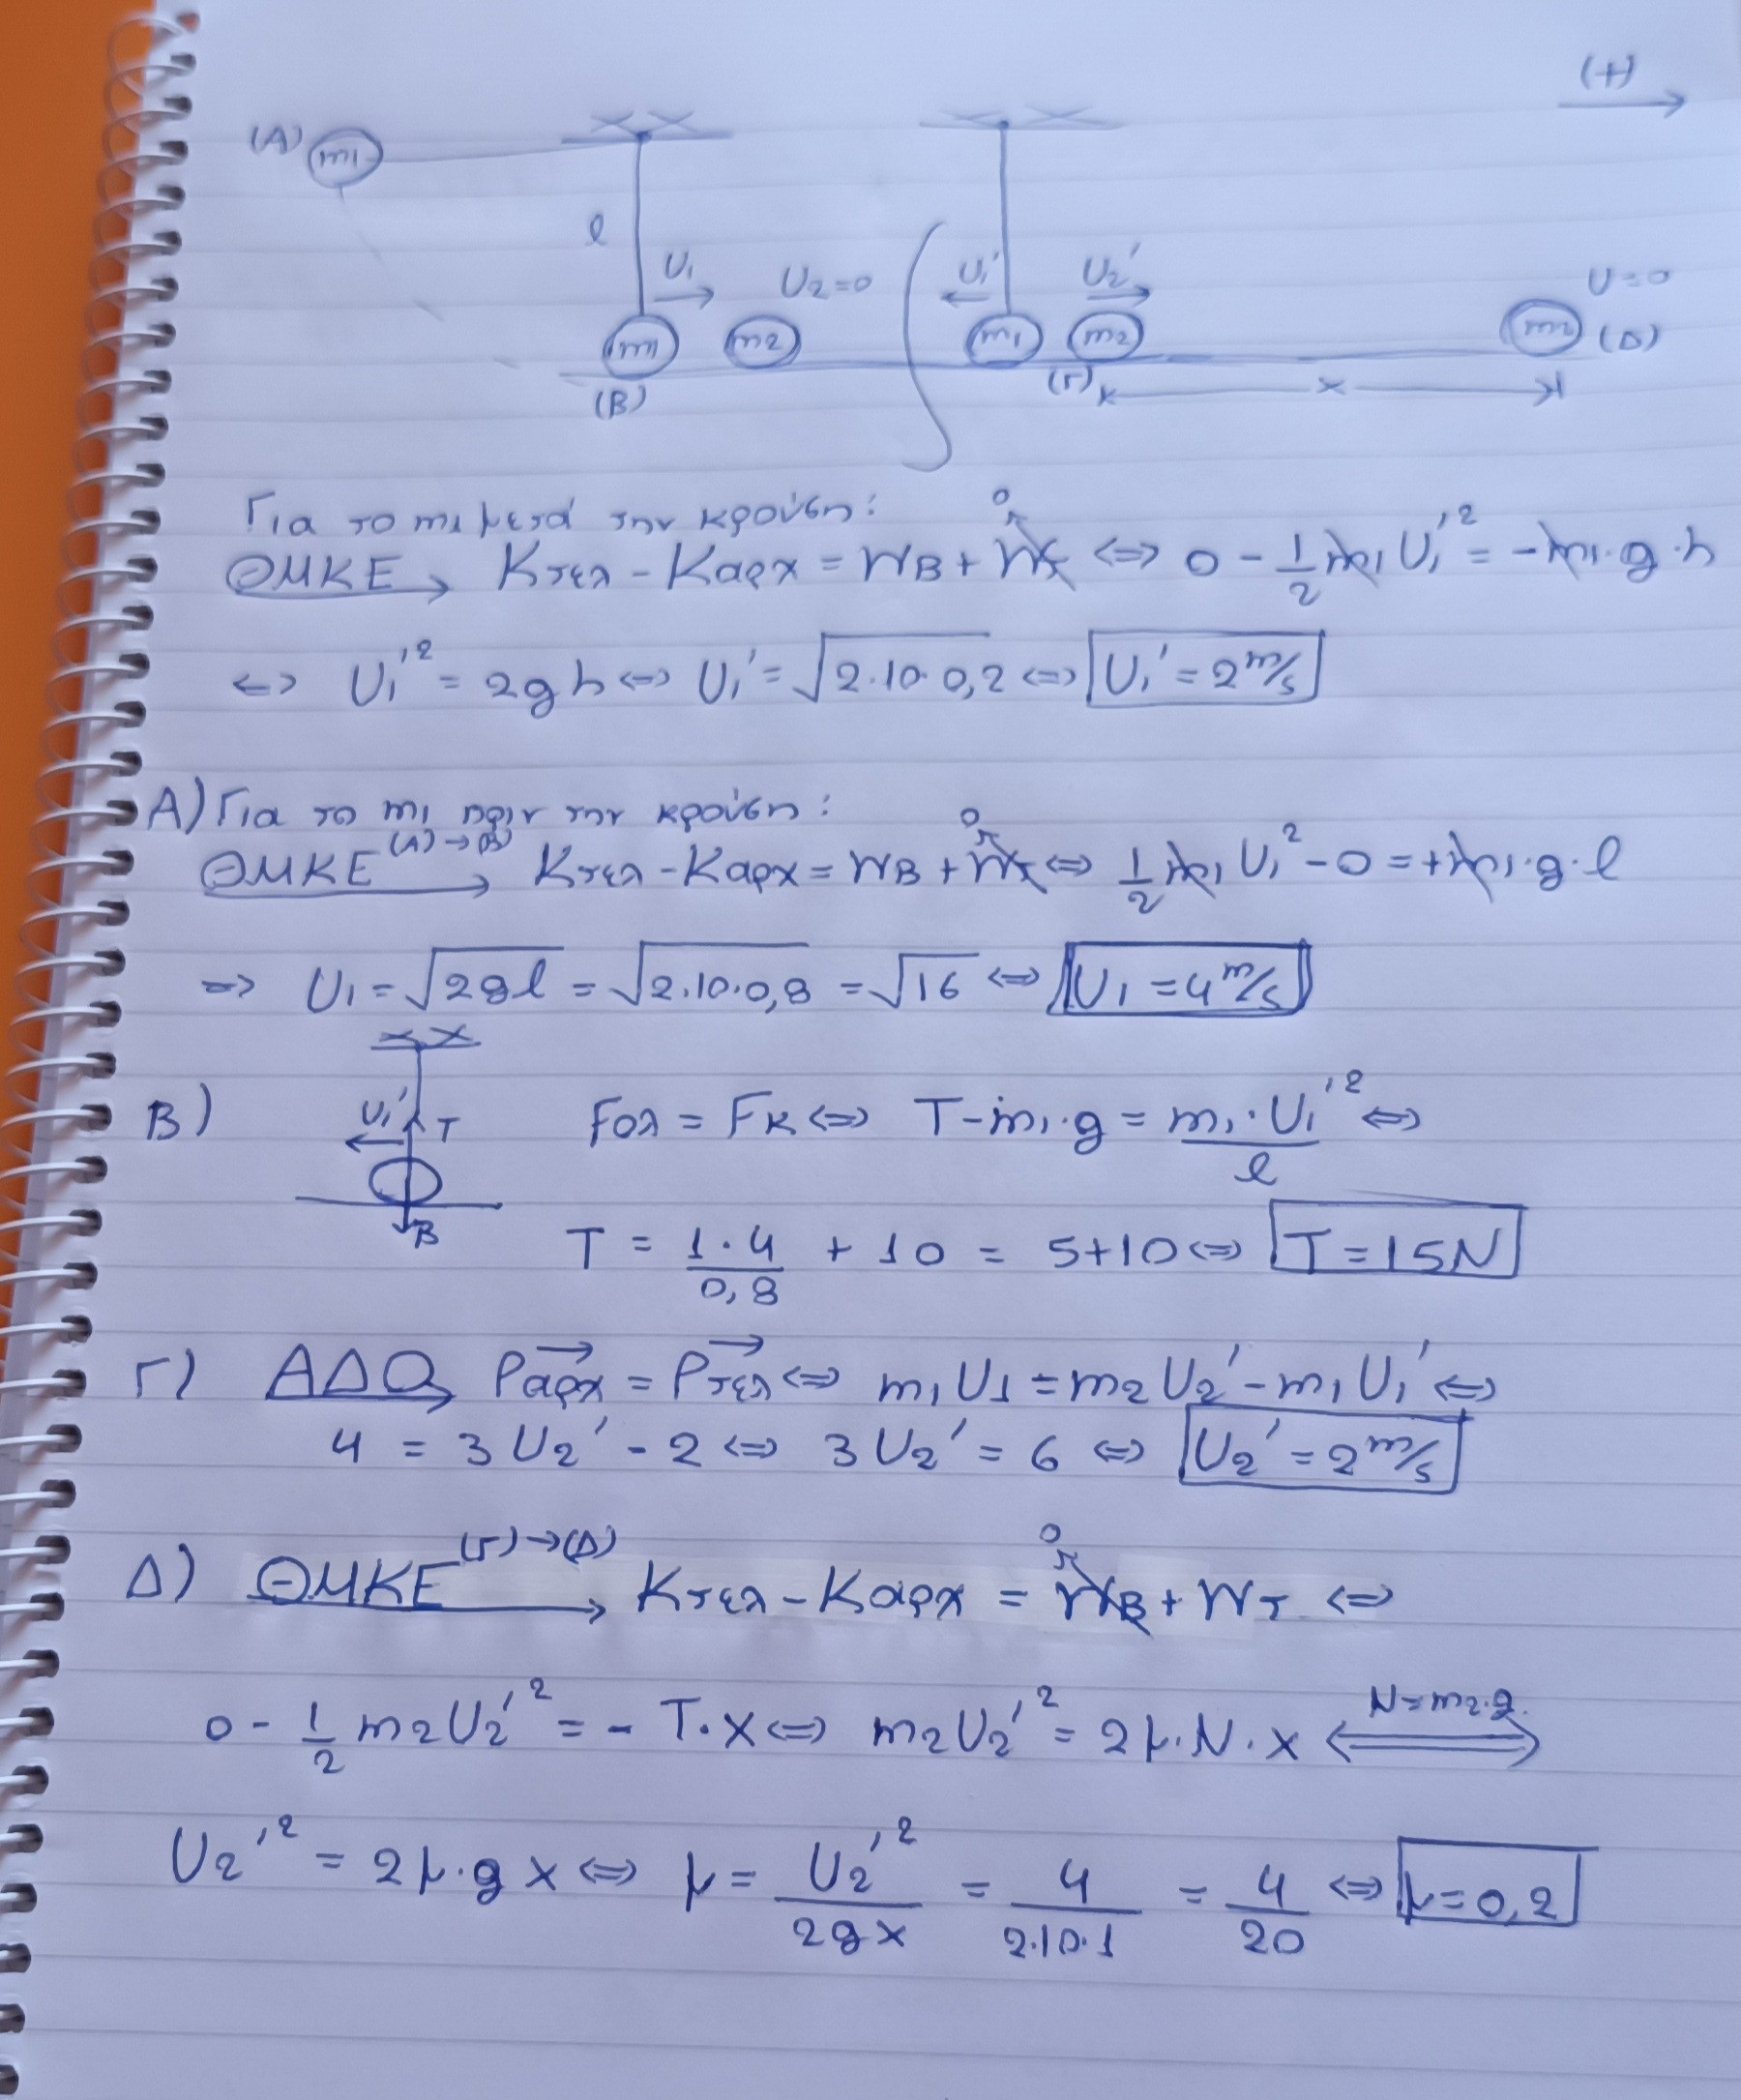 (+)
(A) m1
l
U1
U2=0
U1'
U2'
U=0
m1 m2 m1 m2 m2 (Δ)
(B) (Γ) x
Για το m1 μετά την κρούση:
ΘΜΚΕ → Κτελ - Καρχ = WB + WT⁰ <=> 0 - 1/2 m1 U1'² = -m1·g·h
<=> U1'² = 2gh <=> U1' = √2·10·0,2 <=> U1' = 2m/s
A) Για το m1 πριν την κρούση:
ΘΜΚΕ (A)→(B) Κτελ - Καρχ = WB + WT⁰ <=> 1/2 m1 U1² - 0 = +m1·g·l
=> U1 = √2gl = √2·10·0,8 = √16 <=> U1 = 4m/s
B) U1' T B Fολ = Fκ <=> T - m1·g = m1·U1'²/l <=>
T = 1·4/0,8 + 10 = 5+10 <=> T = 15N
Γ) ΑΔΟ → Pαρχ = Pτελ <=> m1U1 = m2U2' - m1U1' <=>
4 = 3U2' - 2 <=> 3U2' = 6 <=> U2' = 2m/s
Δ) ΘΜΚΕ (Γ)→(Δ) Κτελ - Καρχ = WB⁰ + WT <=>
0 - 1/2 m2U2'² = - T·x <=> m2U2'² = 2μ·N·x <=> N=m2·g
U2'² = 2μ·g x <=> μ = U2'²/2gx = 4/2·10·1 = 4/20 <=> μ=0,2